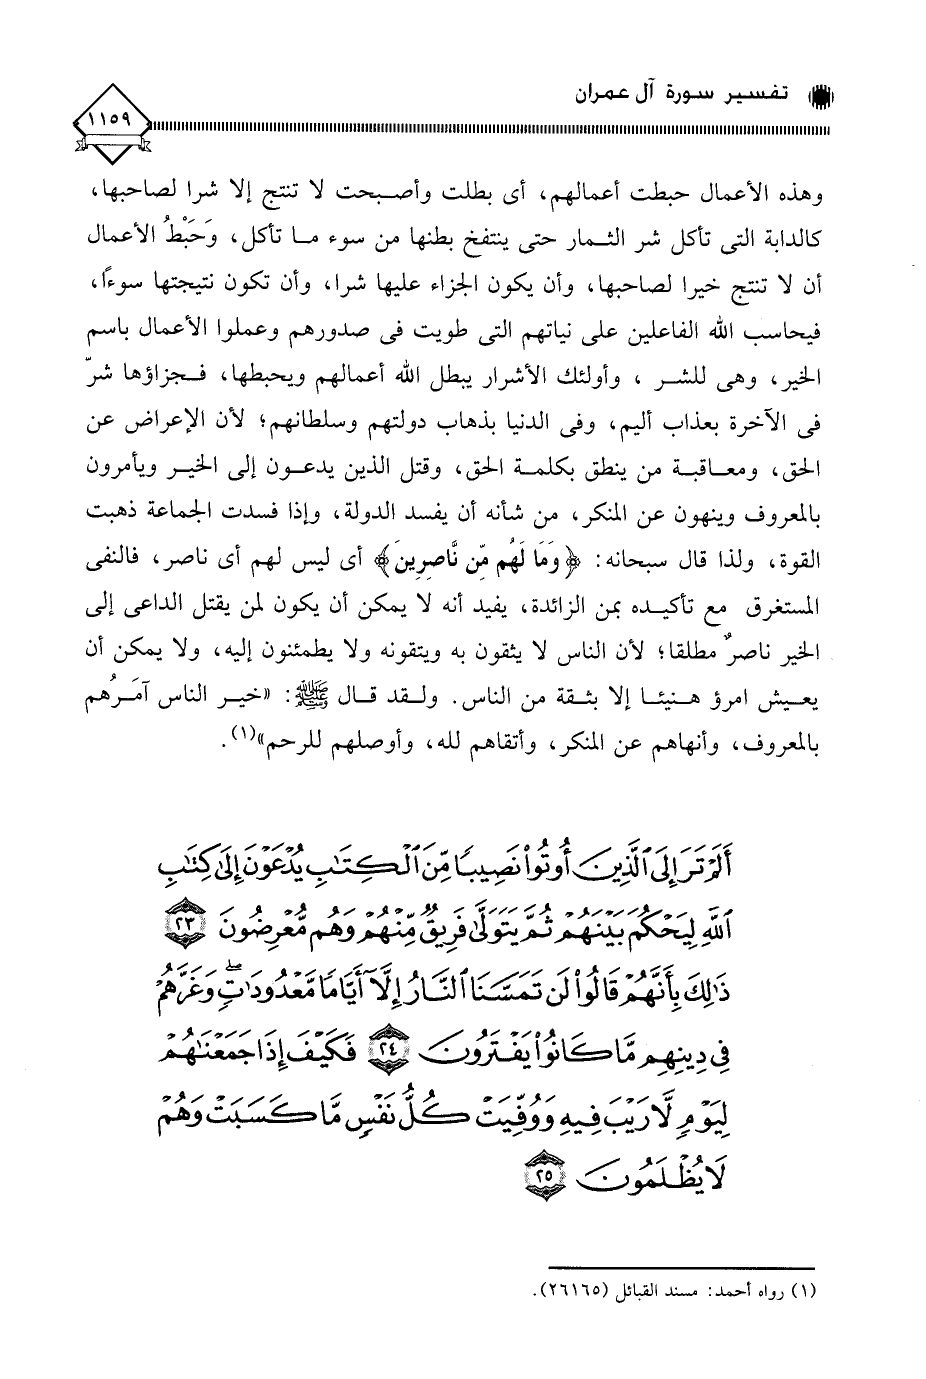 تفسير سورة آل عمران
١١٥٩
وهذه الأعمال حبطت أعمالهم، أى بطلت وأصبحت لا تنتج إلا شرا لصاحبها،
كالدابة التى تأكل شر الثمار حتى ينتفخ بطنها من سوء ما تأكل، وَحَبْطُ الأعمال
أن لا تنتج خيرا لصاحبها، وأن يكون الجزاء عليها شرا، وأن تكون نتيجتها سوءًا،
فيحاسب الله الفاعلين على نياتهم التى طويت فى صدورهم وعملوا الأعمال باسم
الخير، وهى للشر ، وأولئك الأشرار يبطل الله أعمالهم ويحبطها، فجزاؤها شرّ
فى الآخرة بعذاب أليم، وفى الدنيا بذهاب دولتهم وسلطانهم؛ لأن الإعراض عن
الحق، ومعاقبة من ينطق بكلمة الحق، وقتل الذين يدعون إلى الخير ويأمرون
بالمعروف وينهون عن المنكر، من شأنه أن يفسد الدولة، وإذا فسدت الجماعة ذهبت
القوة، ولذا قال سبحانه: ﴿وَمَا لَهُم مِّن نَّاصِرِينَ﴾ أى ليس لهم أى ناصر، فالنفى
المستغرق مع تأكيده بمن الزائدة، يفيد أنه لا يمكن أن يكون لمن يقتل الداعى إلى
الخير ناصرٌ مطلقا؛ لأن الناس لا يثقون به ويتقونه ولا يطمئنون إليه، ولا يمكن أن
يعيش امرؤ هنيئا إلا بثقة من الناس. ولقد قال ﷺ: «خير الناس آمَرُهم
بالمعروف، وأنهاهم عن المنكر، وأتقاهم لله، وأوصلهم للرحم»(١).
أَلَمْ تَرَ إِلَى ٱلَّذِينَ أُوتُوا۟ نَصِيبًا مِّنَ ٱلْكِتَٰبِ يُدْعَوْنَ إِلَىٰ كِتَٰبِ
ٱللَّهِ لِيَحْكُمَ بَيْنَهُمْ ثُمَّ يَتَوَلَّىٰ فَرِيقٌ مِّنْهُمْ وَهُم مُّعْرِضُونَ ٢٣
ذَٰلِكَ بِأَنَّهُمْ قَالُوا۟ لَن تَمَسَّنَا ٱلنَّارُ إِلَّآ أَيَّامًا مَّعْدُودَٰتٍ ۖ وَغَرَّهُمْ
فِى دِينِهِم مَّا كَانُوا۟ يَفْتَرُونَ ٢٤ فَكَيْفَ إِذَا جَمَعْنَٰهُمْ
لِيَوْمٍ لَّا رَيْبَ فِيهِ وَوُفِّيَتْ كُلُّ نَفْسٍ مَّا كَسَبَتْ وَهُمْ
لَا يُظْلَمُونَ ٢٥
(١) رواه أحمد: مسند القبائل (٢٦١٦٥).